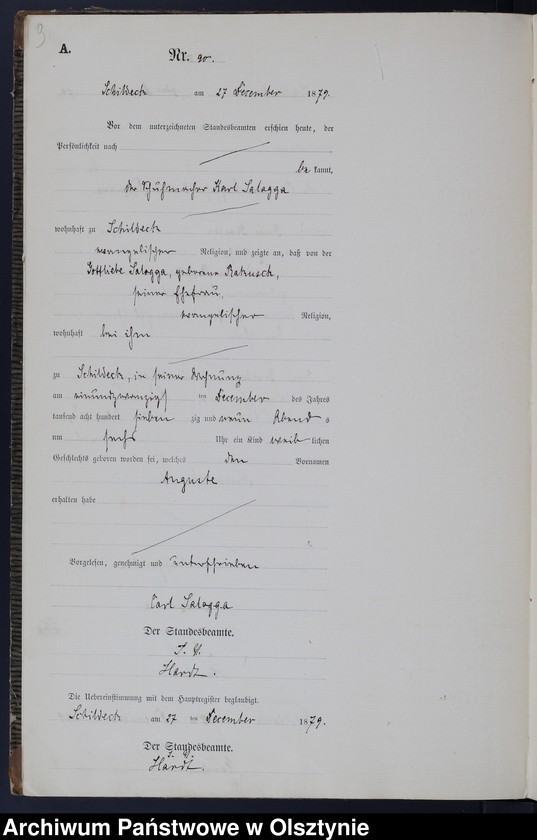 3
A.
Nr. 90.
Schildeck am 27 December 1879.
Vor dem unterzeichneten Standesbeamten erschien heute, der
Persönlichkeit nach
be kannt,
der Schuhmacher Karl Salagga
wohnhaft zu Schildeck
evangelischer Religion, und zeigte an, daß von der
Gottliebe Salagga, geborene Ratzusch,
seiner Ehefrau,
evangelischer Religion,
wohnhaft bei ihm
zu Schildeck, in seiner Wohnung
am einundzwanzigst ten December des Jahres
tausend acht hundert sieben zig und neun Abend s
um sechs Uhr ein Kind weib lichen
Geschlechts geboren worden sei, welches den Vornamen
Auguste
erhalten habe
Vorgelesen, genehmigt und unterschrieben
Carl Salagga
Der Standesbeamte.
Hardt.
Die Uebereinstimmung mit dem Hauptregister beglaubigt.
Schildeck am 27 ten December 1879.
Der Standesbeamte.
Hardt.
Archiwum Państwowe w Olsztynie